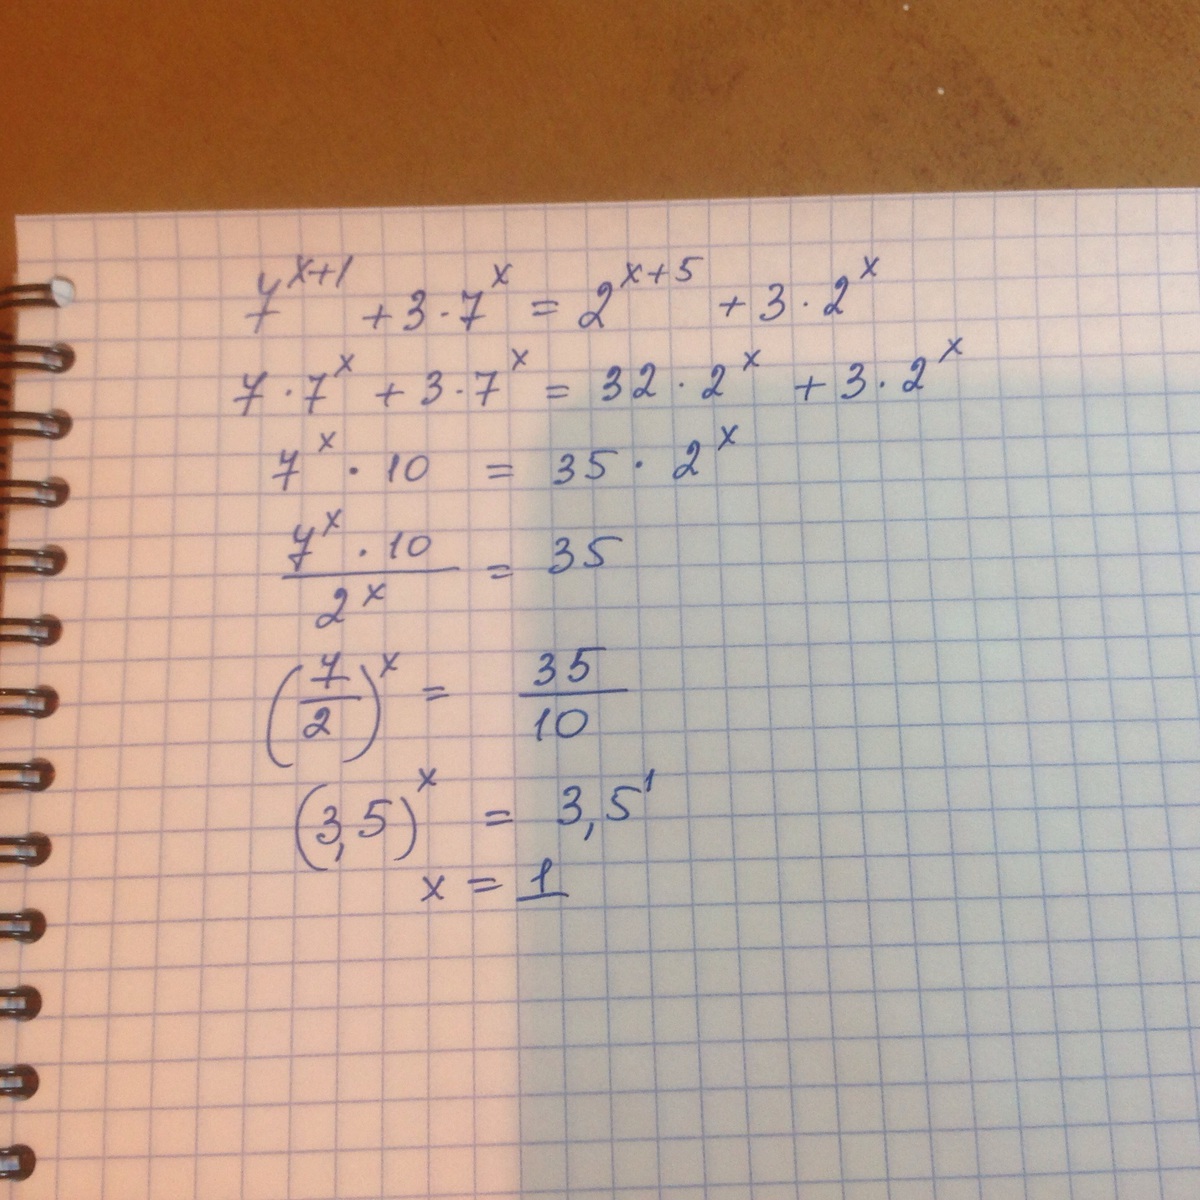 7^{x+1} + 3·7^x = 2^{x+5} + 3·2^x
7·7^x + 3·7^x = 32·2^x + 3·2^x
7^x · 10 = 35·2^x
\frac{7^x · 10}{2^x} = 35
(\frac{7}{2})^x = \frac{35}{10}
(3,5)^x = 3,5^1
x = 1